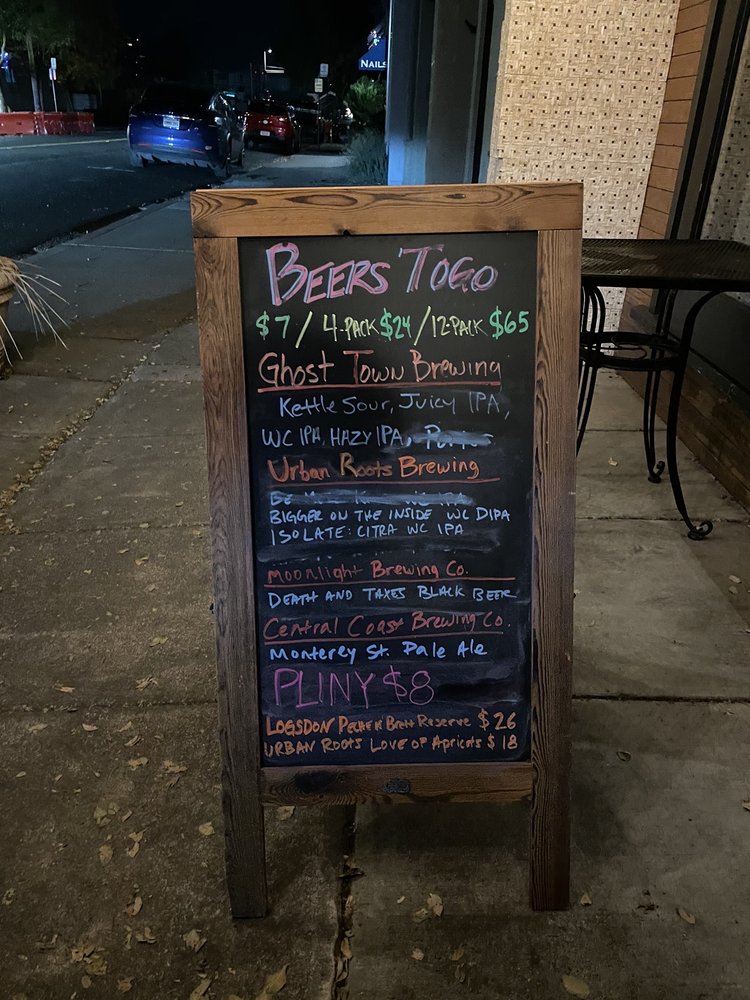 NAILS
BEERS TOGO
$7 / 4-PACK $24 / 12-PACK $65
Ghost Town Brewing
Kettle Sour, Juicy IPA,
WC IPA, HAZY IPA,
Urban Roots Brewing
BIGGER ON THE INSIDE WC DIPA
ISOLATE: CITRA WC IPA
Moonlight Brewing Co.
DEATH AND TAXES BLACK BEER
Central Coast Brewing Co.
Monterey St. Pale Ale
PLINY $8
LOGSDON Peche n' Brett Reserve $26
URBAN Roots Love of Apricots $18